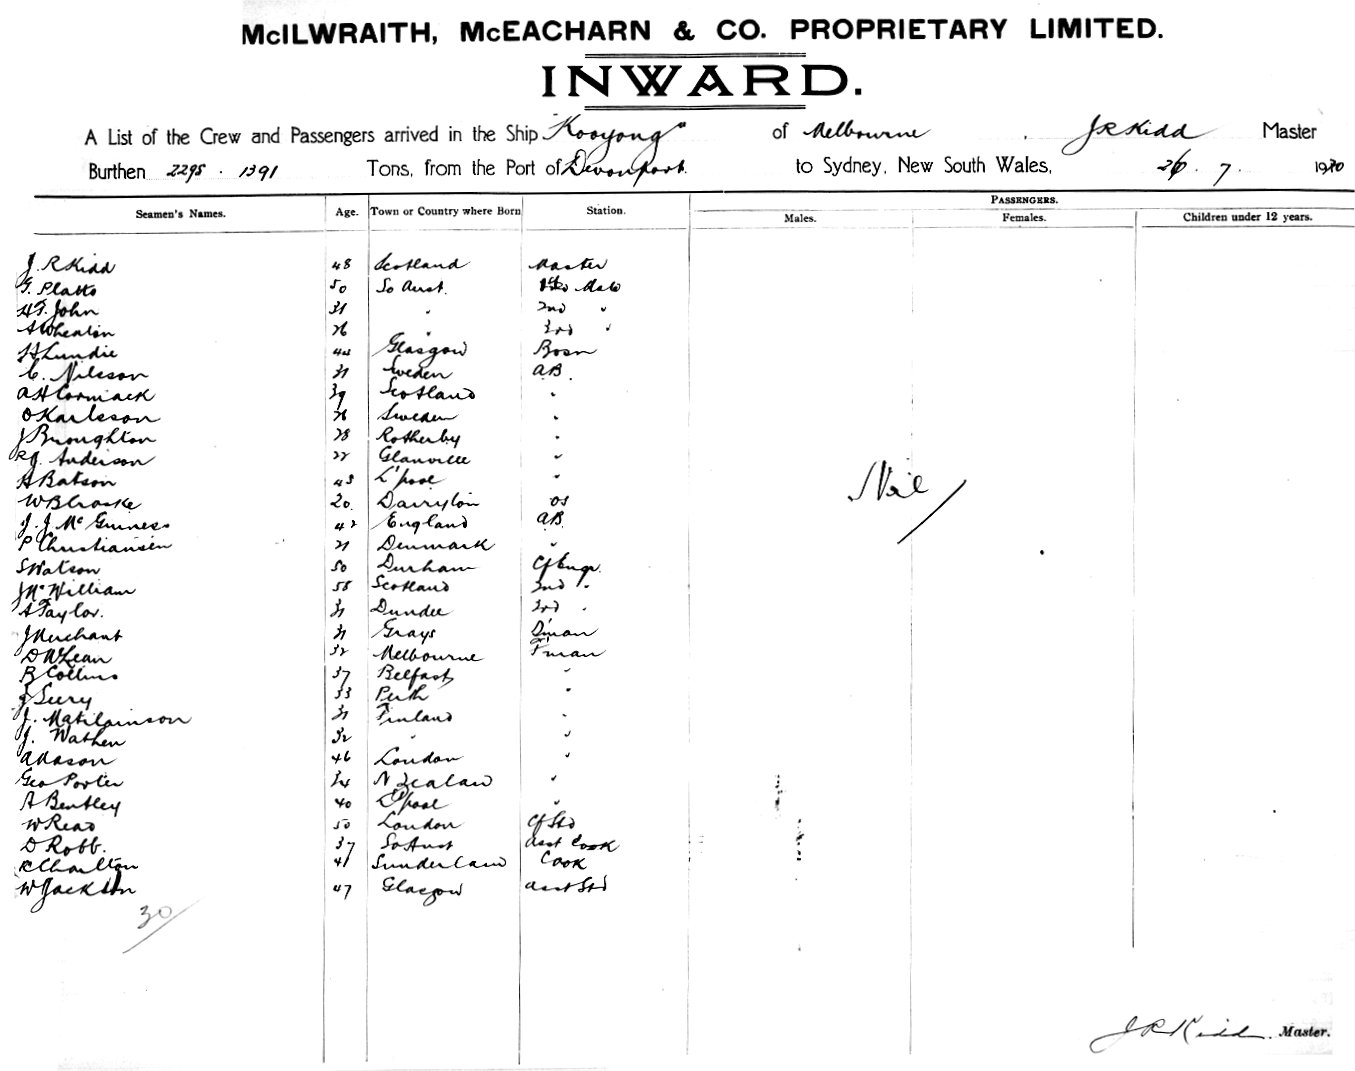 McILWRAITH, McEACHARN & CO. PROPRIETARY LIMITED.
INWARD.
A List of the Crew and Passengers arrived in the Ship "Kooyong" of Melbourne, J R Kidd Master
Burthen 2295 . 1391 Tons, from the Port of Devonport. to Sydney, New South Wales, 26 . 7 . 1920
PASSENGERS.
Seamen's Names. Age. Town or Country where Born Station. Males. Females. Children under 12 years.
J. R Kidd 48 Scotland Master
G. Platts 50 So Aust. Mate
H F. John 31 " 2nd "
A Wheaton 26 " 3rd "
H Lundie 44 Glasgow Bosn
C. Nilsson 31 Sweden AB.
A H Cormack 39 Scotland "
O Karlsson 26 Sweden "
J Broughton 28 Rotherby "
R J. Anderson 22 Glanville "
A Batson 43 L'pool "
W B 20. OS
J. J. Mc Guiness 42 England AB.
P Christiansen 21 Denmark "
S Watson 50 Durham Cf Engr.
J Mc William 58 Scotland 2nd "
A Taylor. 31 Dundee 3rd "
J Merchant 31 Grays D'man
D McLean 32 Melbourne F'man
B Collins 37 Belfast "
J Seery 33 Perth "
J. 31 Finland "
J. Wathen 32 " "
A Mason 46 London "
Geo Porter 34 N Zealand "
A Bentley 40 L'pool "
W Read 50 London Cf Std
D Robb. 37 So Aust Asst Cook
R Charlton 41 Sunderland Cook
W Jackson 47 Glasgow Asst Std
Nil
30
J R Kidd. Master.